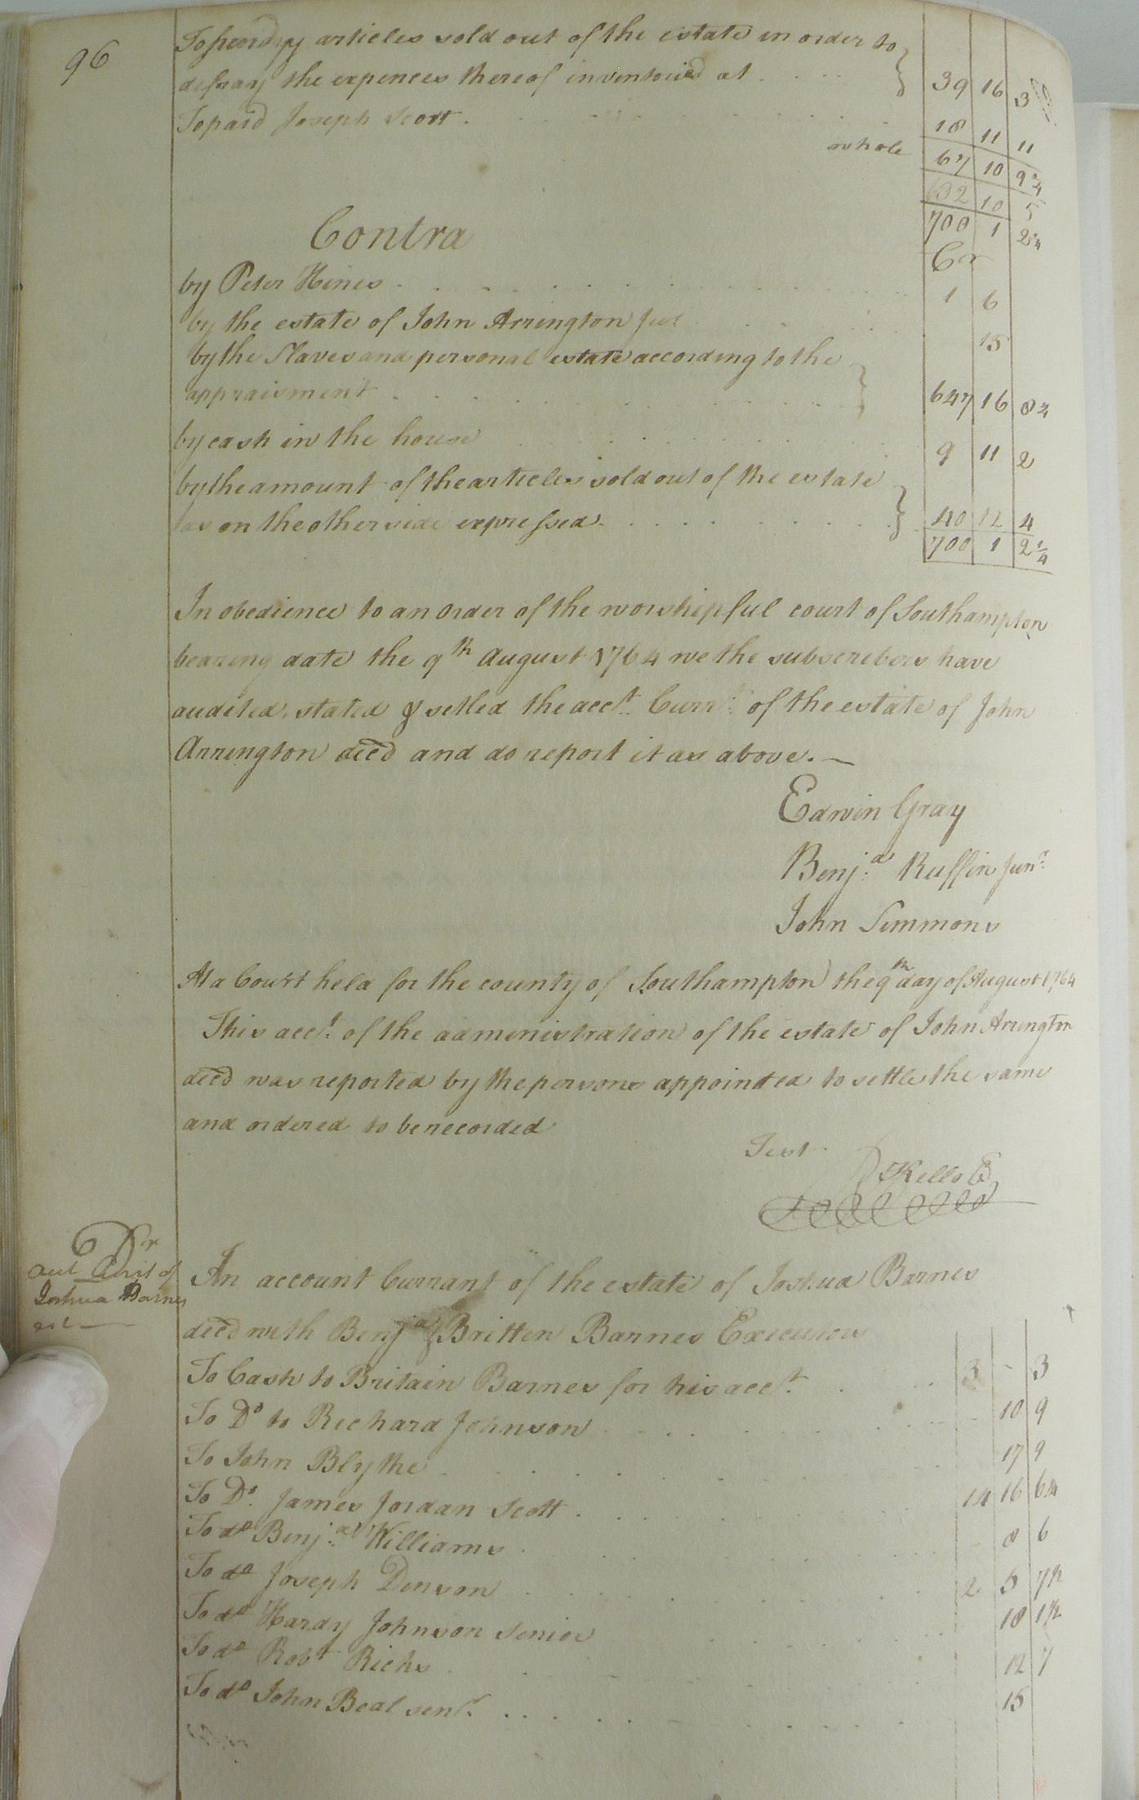 96
To sundry articles sold out of the estate in order to
defray the expences thereof inventoried at 39 16 3
To paid Joseph Scott 18 11 11
whole 67 10 9 1/4
632 10 5
700 1 2 1/4
Contra Cr
by Peter Hines 1 6
by the estate of John Arrington 15
by the Slaves and personal estate according to the
appraisment 647 16 8 1/4
by cash in the house 9 11 2
by the amount of the articles sold out of the estate
as on the other side expressed 40 12 4
700 1 2 1/4
In obedience to an order of the worshipful court of Southampton
bearing date the 9th August 1764 we the subscribers have
audited, stated & setled the acct. Curr.t of the estate of John
Arrington deced and do report it as above.—
Edwin Gray
Benj.a Ruffin Junr.
John Simmons
At a Court held for the county of Southampton the 9th day of August 1764
This acct. of the administration of the estate of John Arrington
deced was reported by the persons appointed to settle the same
and ordered to be recorded
Test
Kello
Dr
Joshua Barnes
An account Currant of the estate of Joshua Barnes
deced with Benja & Britten Barnes Executors
To Cash to Britain Barnes for his acct. 3 - 3
To Do to Richard Johnson 10 9
To John Blythe 17 9
To Do. James Jordan Scott 14 16 6 1/4
To do Benj.a Williams 8 6
To do Joseph Denson 2 5 7 1/2
To do Hardy Johnson senior 18 1 1/2
To do Robt Ricks 12 7
To do John Beal senr. 15